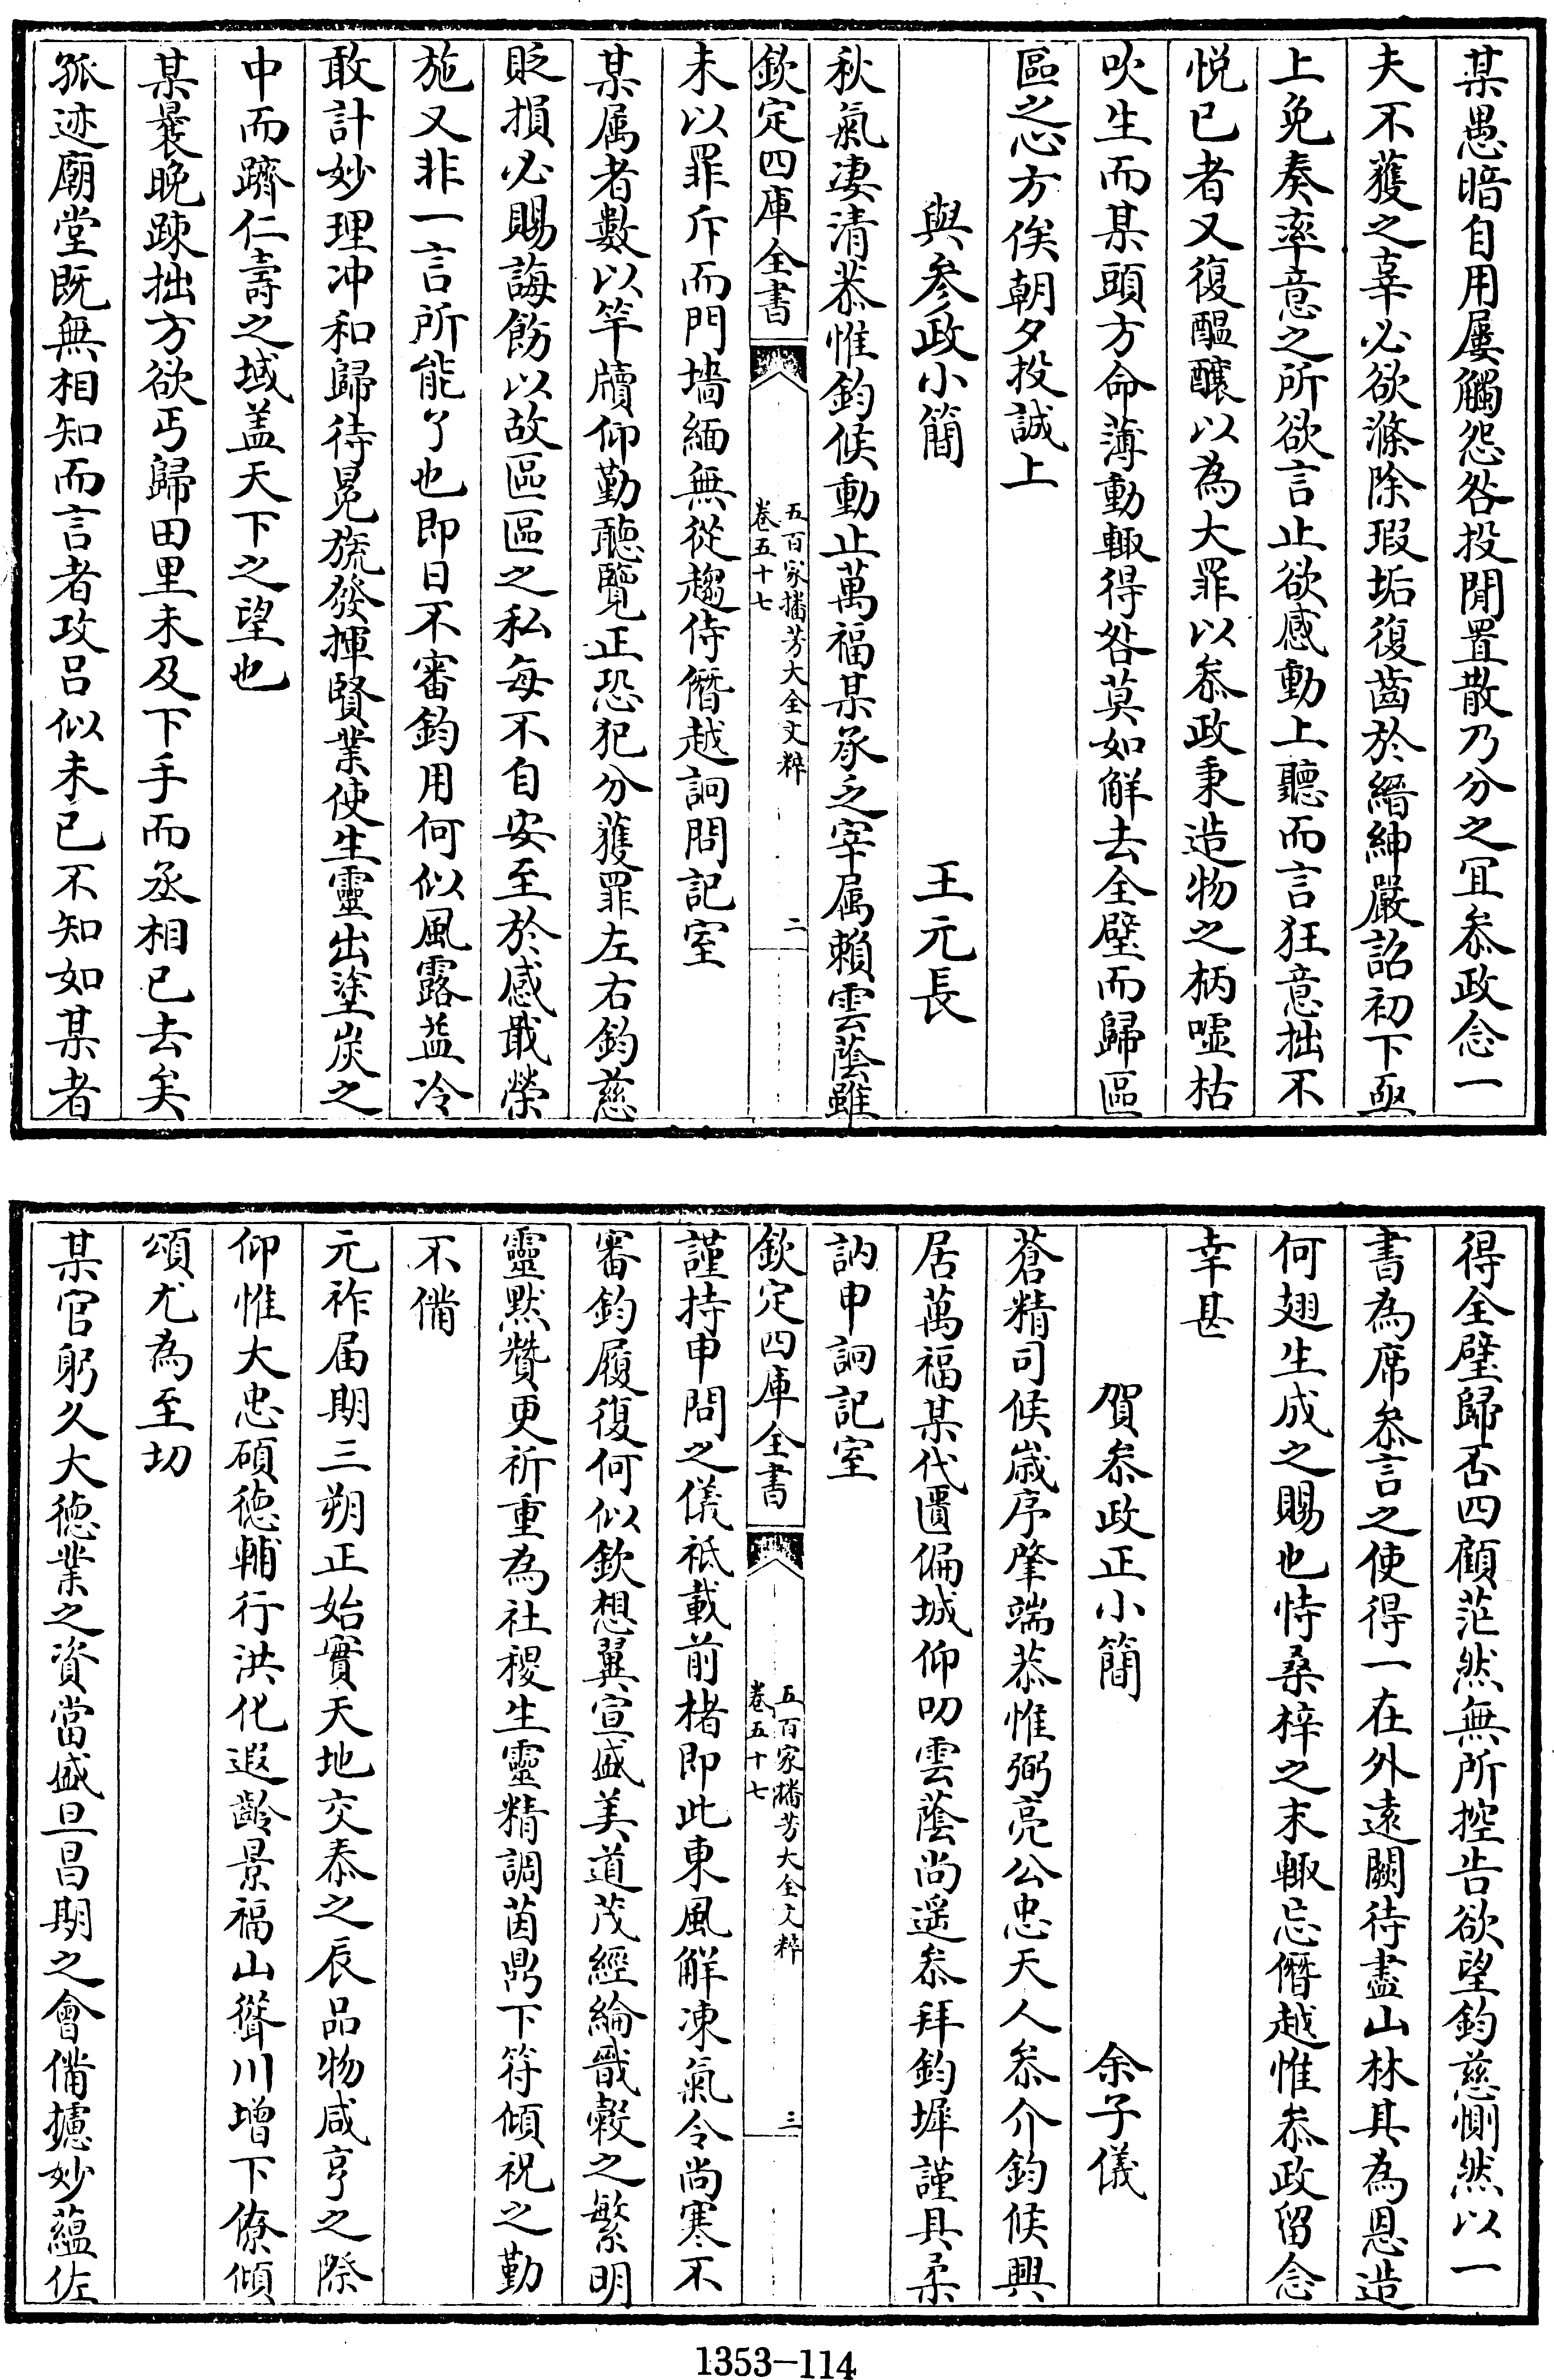 某愚暗自用屢觸怨咎投閒置散乃分之宜叅政念一
夫不獲之辜必欲滌除瑕垢復齒於縉紳嚴詔初下亟
上免奏率意之所欲言止欲感動上聽而言狂意拙不
悦已者又復醖釀以為大罪以叅政秉造物之柄噓枯
吹生而某頭方命薄動輙得咎莫如解去全璧而歸區
區之心方俟朝夕投誠上
與參政小簡　王元長
秋氣凄清恭惟鈞候動止萬福某承乏宰属賴雲蔭雖
欽定四庫全書
五百家播芳大全文粹
卷五十七
二
未以罪斥而門墻緬無從趨侍僭越詗問記室
某属者數以竿牘仰勤聽覽正恐犯分獲罪左右鈞慈
貶損必賜誨飭以故區區之私每不自安至於感戢榮
施又非一言所能了也即日不審鈞用何似風露益冷
敢計妙理冲和歸待冕旒發揮賢業使生靈出塗炭之
中而躋仁壽之域盖天下之望也
某衰晚踈拙方欲丐歸田里未及下手而丞相已去矣
孤迹廟堂既無相知而言者攻吕似未已不知如某者
得全璧歸否四顧茫然無所控告欲望鈞慈惻然以一
書為席叅言之使得一在外遠闕待盡山林其為恩造
何翅生成之賜也恃桑梓之末輙忘僭越惟叅政留念
幸甚
賀叅政正小簡　余子儀
蒼精司候嵗序肇端恭惟弼亮公忠天人叅介鈞候興
居萬福某代匱偏城仰叨雲蔭尚遥叅拜鈞墀謹具柔
訥申詗記室
欽定四庫全書
五百家播芳大全文粹
卷五十七
三
謹持申問之儀祗載前楮即此東風解凍氣令尚寒不
審鈞履復何似欽想翼宣盛美道茂經綸戩榖之繁明
靈默贊更祈重為社稷生靈精調茵鼎下符傾祝之勤
不備
元祚届期三朔正始實天地交泰之辰品物咸亨之際
仰惟大忠碩徳輔行洪化遐齡景福山聳川增下僚傾
頌尤為至切
某官躬久大徳業之資當盛旦昌期之會備攄妙蘊佐
1353—114